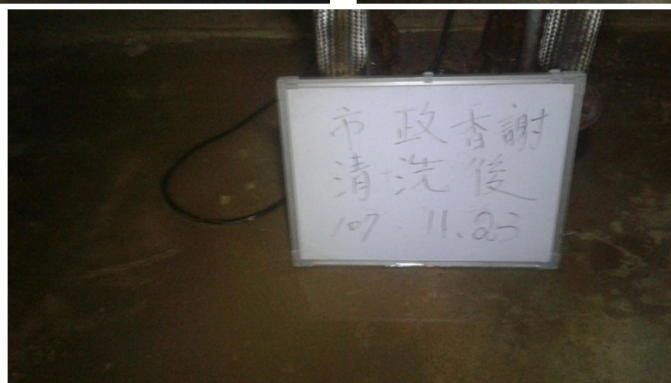 市政香謝
清洗後
107.11.23